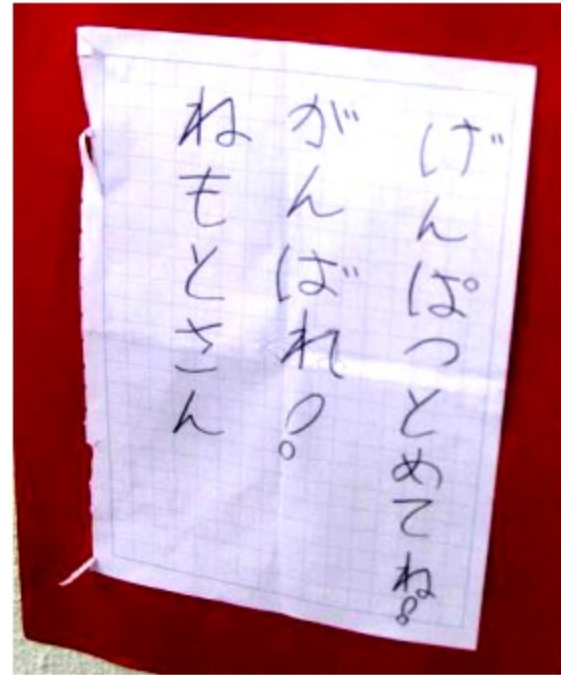 げんぱつとめてね!
がんばれ!
ねもとさん